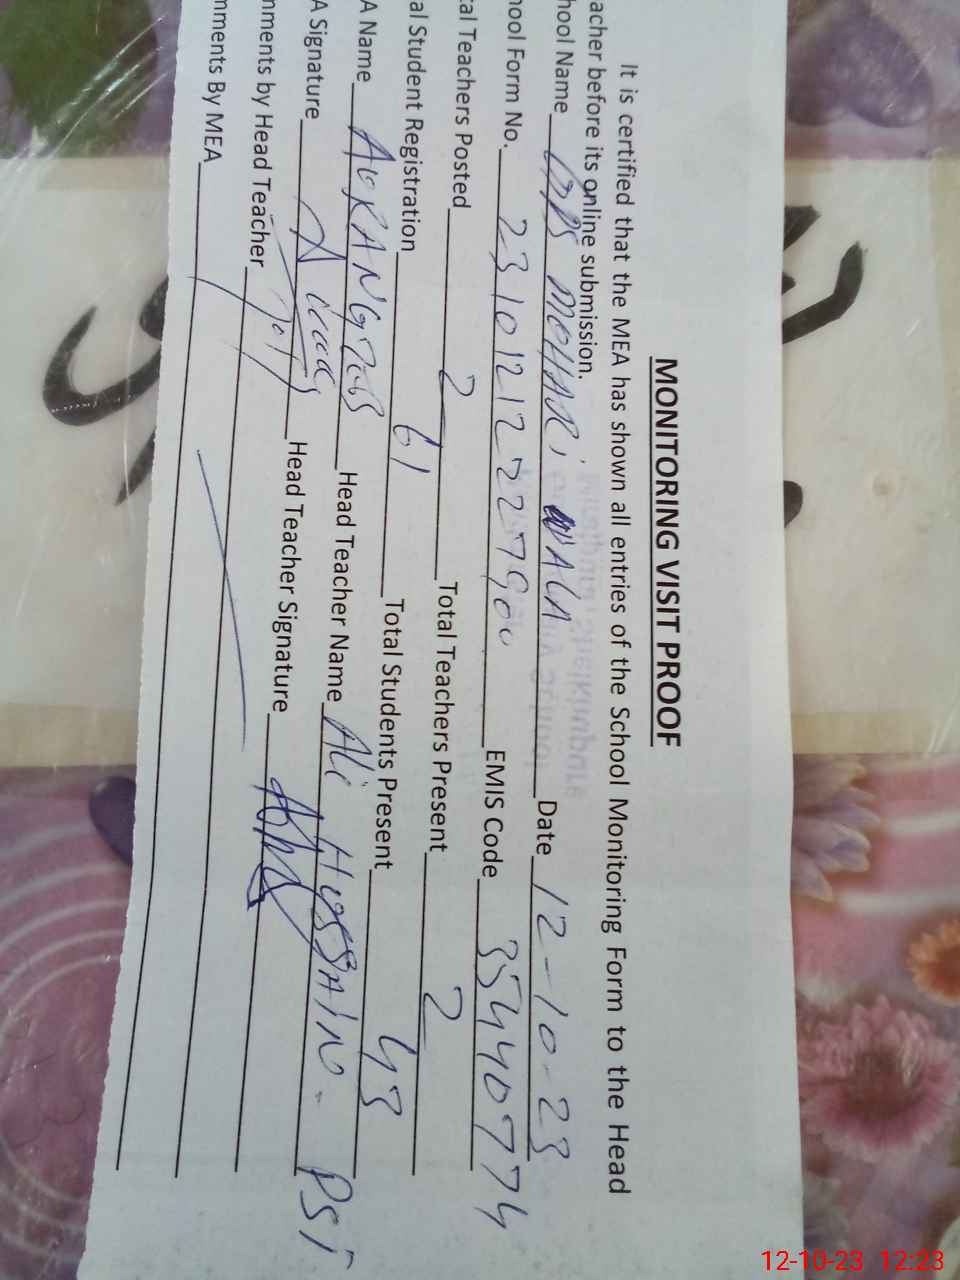 MONITORING VISIT PROOF
It is certified that the MEA has shown all entries of the School Monitoring Form to the Head
acher before its online submission.
hool Name GPS MOHARI WALA Date 12-10-23
hool Form No. EMIS Code 35440774
tal Teachers Posted 2 Total Teachers Present 2
al Student Registration 61 Total Students Present 43
A Name AURANGZEB Head Teacher Name Ali HUSSAIN - PST
A Signature Head Teacher Signature
mments by Head Teacher
mments By MEA
12-10-23 12:23